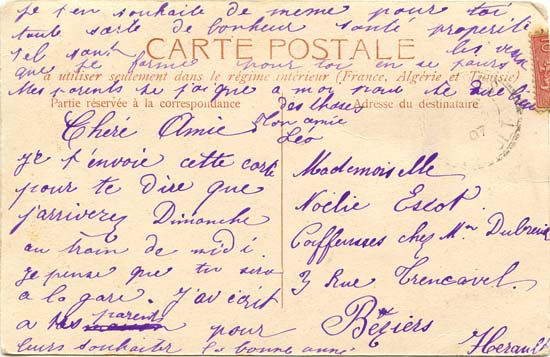 je t'en souhaite de meme pour toi
toute sorte de bonheur santé properité
tel sont les vœux
CARTE POSTALE
que je forme pour toi en se jours
à utiliser seulement dans le régime intérieur (France, Algérie et Tunisie)
Mes parents se joigne a moi pour te dire bien
des choses
Partie réservée à la correspondance
Adresse du destinataire
Ton amie
Léo
Chéré Amie
je t'envoie cette carte
pour te dire que
j'arriverez Dimanche
au train de midi.
je pense que tu sera
a la gare. J'ai écrit
a tes parents pour
leurs souhaiter la bonne anné
Mademoiselle
Noélie Escot
Coiffeuses chez Mr Dubreuil
3 Rue Trencavel.
Béziers
Herault
07